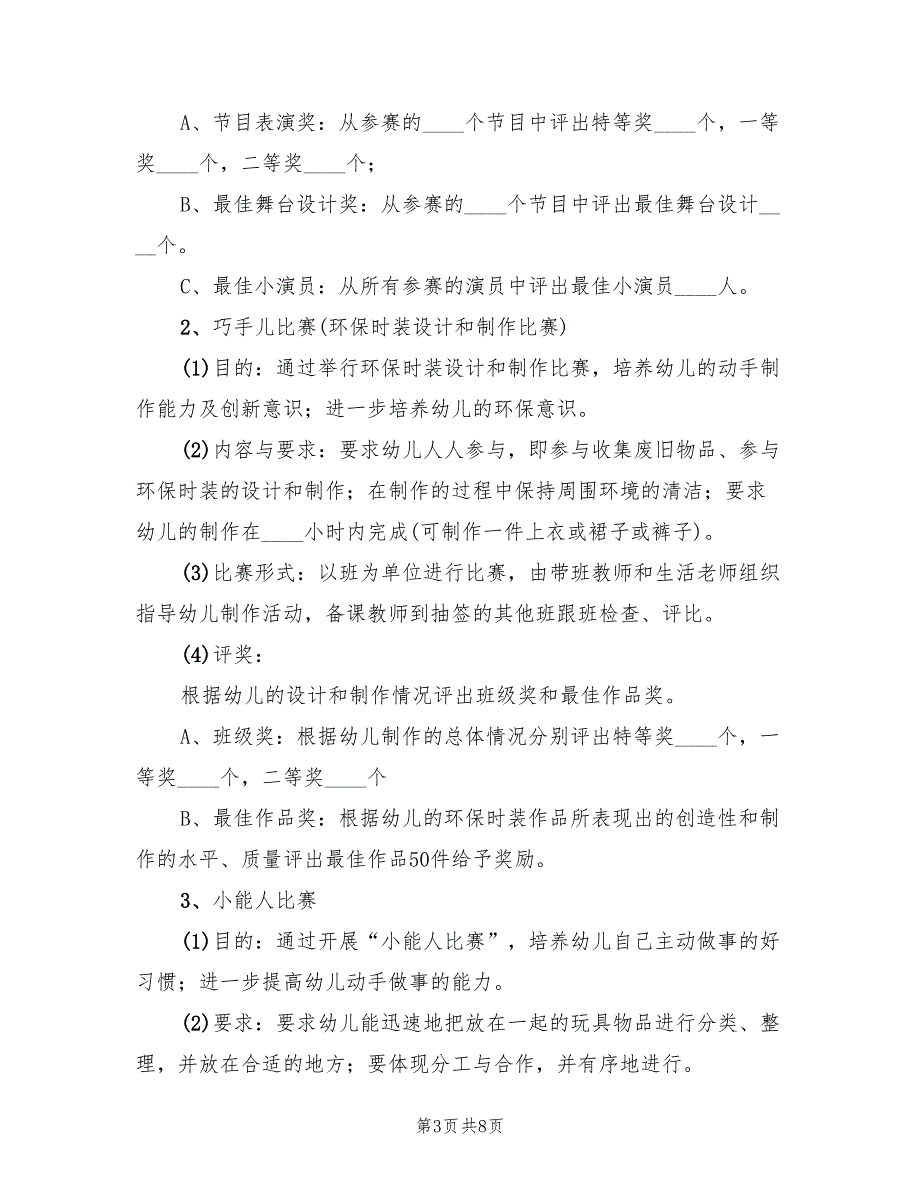 A、节目表演奖：从参赛的____个节目中评出特等奖____个，一等
奖____个，二等奖____个；
B、最佳舞台设计奖：从参赛的____个节目中评出最佳舞台设计__
__个。
C、最佳小演员：从所有参赛的演员中评出最佳小演员____人。
2、巧手儿比赛(环保时装设计和制作比赛)
(1)目的：通过举行环保时装设计和制作比赛，培养幼儿的动手制
作能力及创新意识；进一步培养幼儿的环保意识。
(2)内容与要求：要求幼儿人人参与，即参与收集废旧物品、参与
环保时装的设计和制作；在制作的过程中保持周围环境的清洁；要求
幼儿的制作在____小时内完成(可制作一件上衣或裙子或裤子)。
(3)比赛形式：以班为单位进行比赛，由带班教师和生活老师组织
指导幼儿制作活动，备课教师到抽签的其他班跟班检查、评比。
(4)评奖：
根据幼儿的设计和制作情况评出班级奖和最佳作品奖。
A、班级奖：根据幼儿制作的总体情况分别评出特等奖____个，一
等奖____个，二等奖____个
B、最佳作品奖：根据幼儿的环保时装作品所表现出的创造性和制
作的水平、质量评出最佳作品50件给予奖励。
3、小能人比赛
(1)目的：通过开展“小能人比赛”，培养幼儿自己主动做事的好
习惯；进一步提高幼儿动手做事的能力。
(2)要求：要求幼儿能迅速地把放在一起的玩具物品进行分类、整
理，并放在合适的地方；要体现分工与合作，并有序地进行。
第3页 共8页